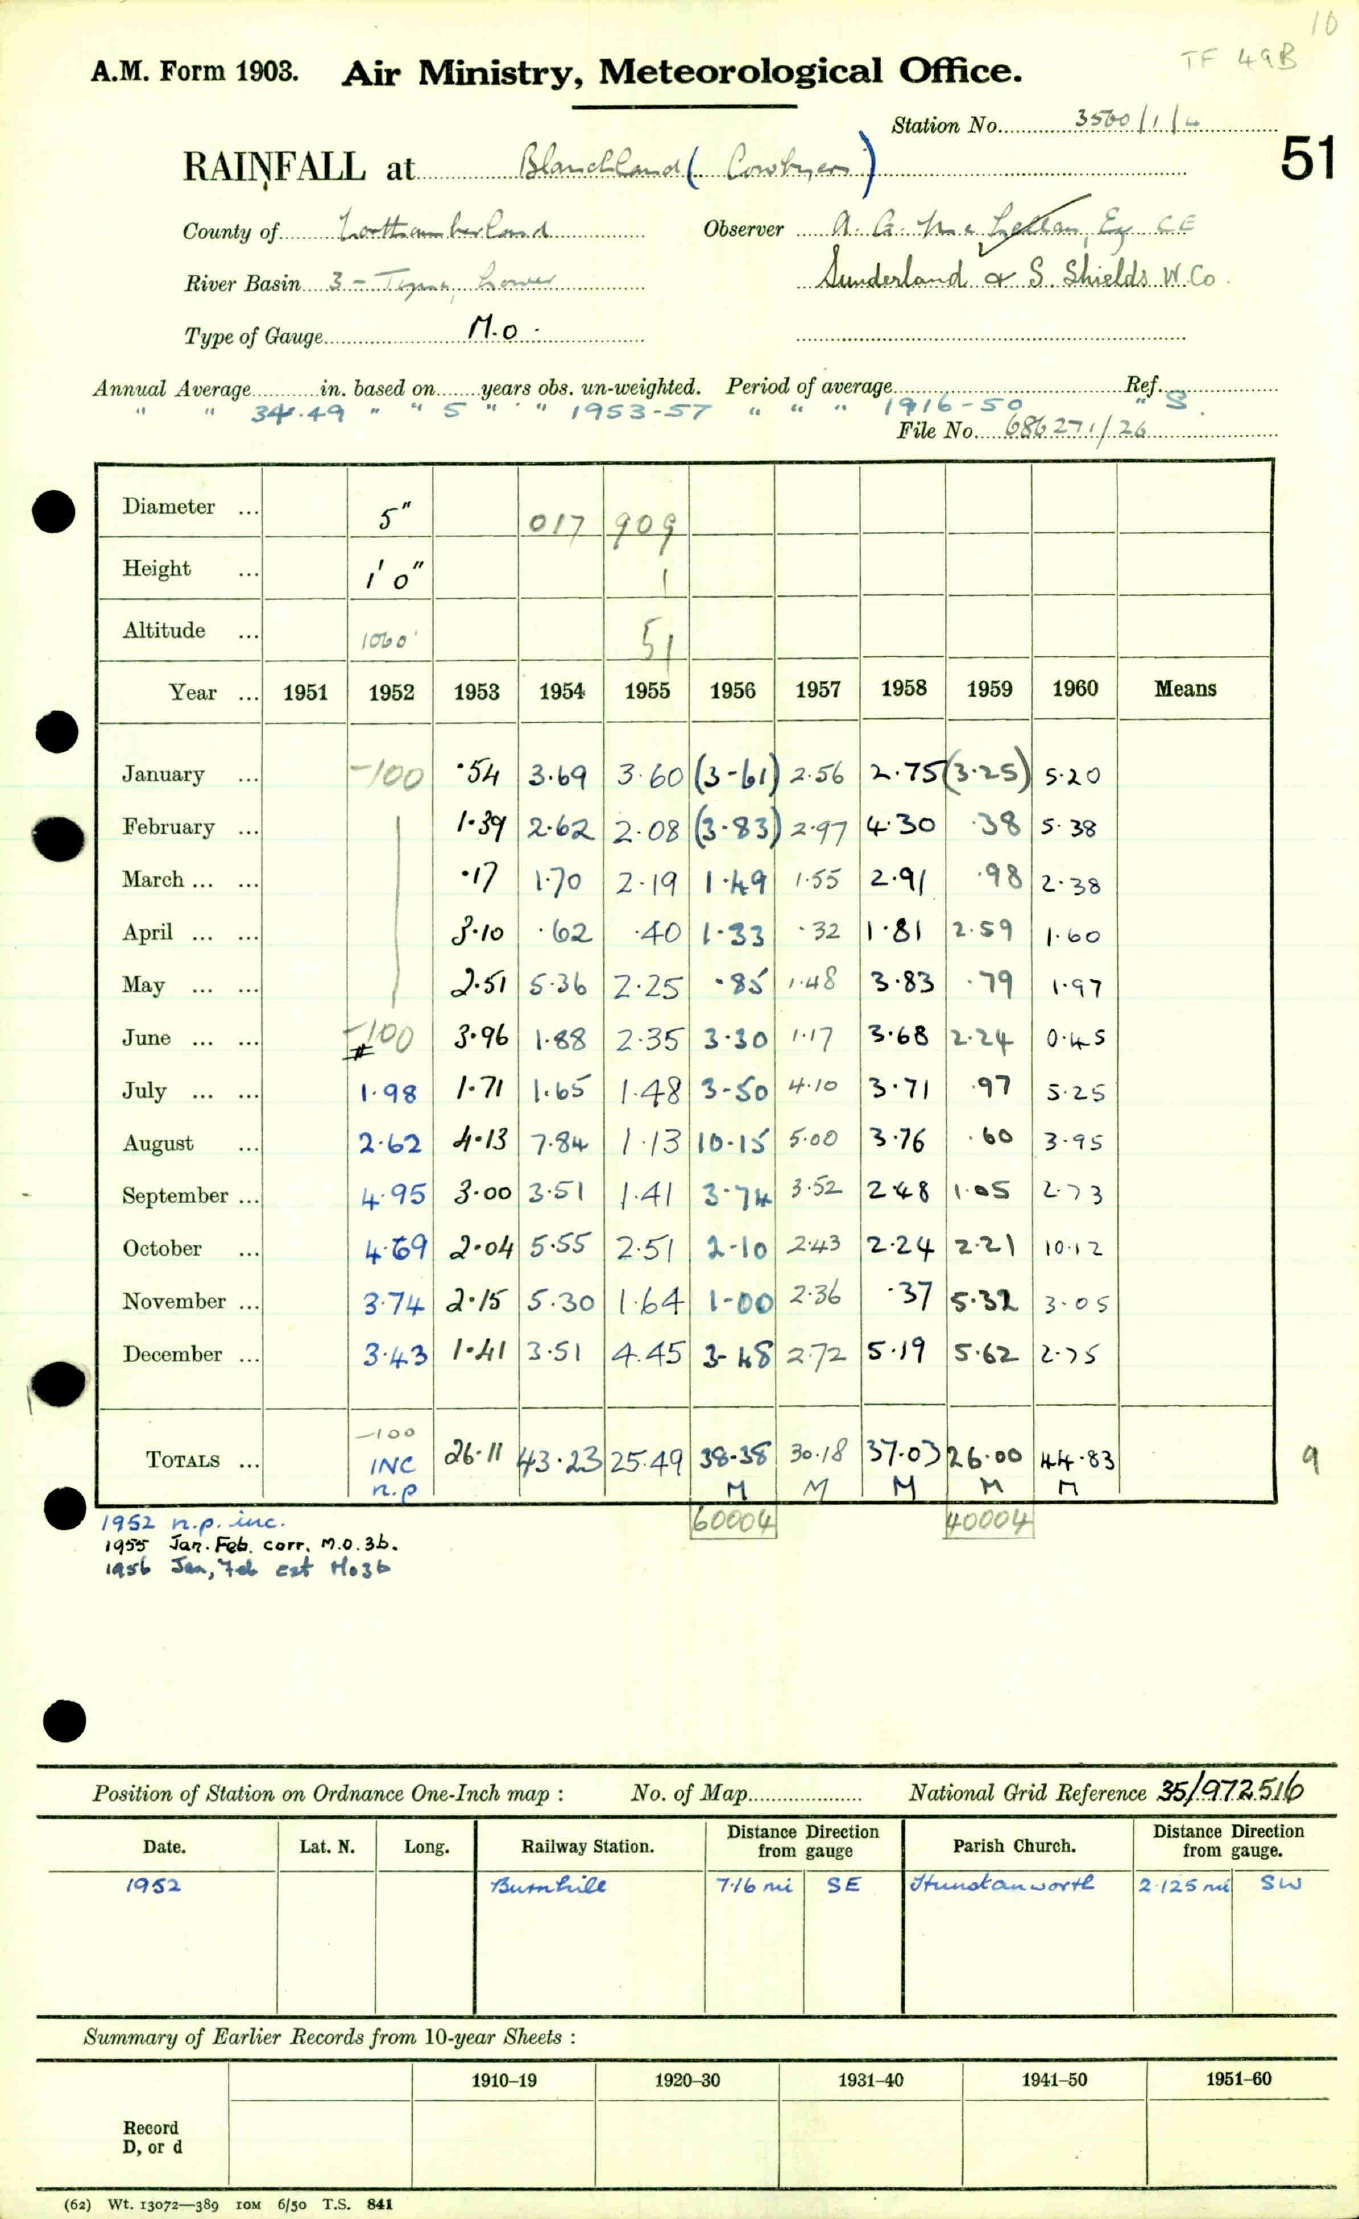 10
TF 49B
A.M. Form 1903. Air Ministry, Meteorological Office.
Station No. 3560/1/4
51
RAINFALL at Blanchland (Cowbyers)
County of Northumberland Observer A. G. McLellan, Esq CE
River Basin 3 - Tyne, Lower Sunderland & S. Shields W. Co.
Type of Gauge M.O.
Annual Average in. based on years obs. un-weighted. Period of average Ref.
" " 34.49 " " 5 " " 1953-57 " " " 1916-50 " S.
File No. 686271/26
Diameter ... 5" 017 909
Height ... 1' 0" 1
Altitude ... 1060' 51
Year ... 1951 1952 1953 1954 1955 1956 1957 1958 1959 1960 Means
January ... -100 .54 3.69 3.60 (3-61) 2.56 2.75 (3.25) 5.20
February ... 1.39 2.62 2.08 (3.83) 2.97 4.30 .38 5.38
March ... ... .17 1.70 2.19 1.49 1.55 2.91 .98 2.38
April ... ... 3.10 .62 .40 1.33 .32 1.81 2.59 1.60
May ... ... 2.51 5.36 2.25 .85 1.48 3.83 .79 1.97
June ... ... -100 3.96 1.88 2.35 3.30 1.17 3.68 2.24 0.45
July ... ... 1.98 1.71 1.65 1.48 3-50 4.10 3.71 .97 5.25
August ... 2.62 4.13 7.84 1.13 10-15 5.00 3.76 .60 3.95
September ... 4.95 3.00 3.51 1.41 3.74 3.52 2.48 1.05 2.73
October ... 4.69 2.04 5.55 2.51 2-10 2.43 2.24 2.21 10.12
November ... 3.74 2.15 5.30 1.64 1-00 2.36 .37 5.32 3.05
December ... 3.43 1.41 3.51 4.45 3-48 2.72 5.19 5.62 2.75
-100
TOTALS ... INC 26.11 43.23 25.49 38-38 30.18 37.03 26.00 44.83 9
n.p M M M M M
1952 n.p. inc. 60004 40004
1955 Jan. Feb. corr. M.O.3b.
1956 Jan, Feb est Mo3b
Position of Station on Ordnance One-Inch map : No. of Map National Grid Reference 35/972516
Date. Lat. N. Long. Railway Station. Distance from Direction gauge Parish Church. Distance from Direction gauge.
1952 Burnhill 7.16 mi SE Hunstanworth 2.125 mi SW
Summary of Earlier Records from 10-year Sheets :
1910–19 1920–30 1931–40 1941–50 1951–60
Record
D, or d
(62) Wt. 13072—389 10M 6/50 T.S. 841